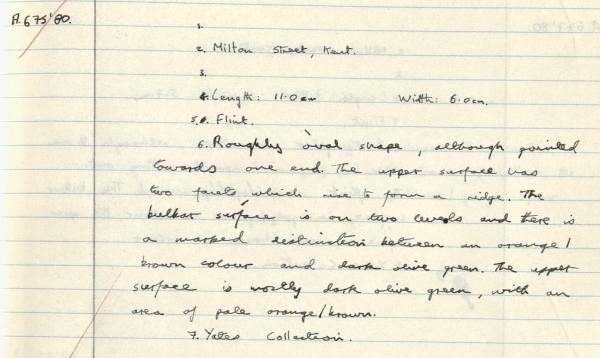 A.675'80.
1.
2. Milton Street, Kent.
3.
4. Length: 11.0cm Width: 6.0cm.
5. Flint.
6. Roughly oval shape, although pointed
towards one end. The upper surface has
two facets which rise to form a ridge. The
bulbar surface is on two levels and there is
a marked distinction between an orange/
brown colour and dark olive green. The upper
surface is mostly dark olive green, with an
area of pale orange/brown.
7. Yates Collection.